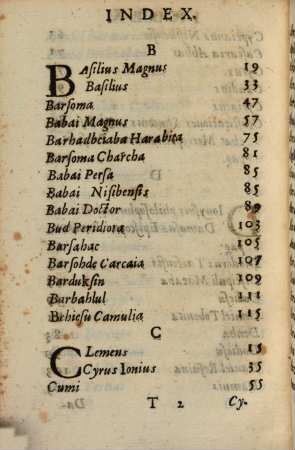 INDEX.
B
BAsilius Magnus 19
Basilius 33
Barsoma 47
Babai Magnus 57
Barhadbciaba Harabita 75
Barsoma Charcha 81
Babai Persa 85
Babai Nisibensis 85
Babai Doctor 89
Bud Peridiota 103
Barsahac 105
Barsohde Carcaia 107
Barduksin 109
Barbahlul 111
Brhiesu Camulia 115
C
CLemens 15
Cyrus Ionius 35
Cumi 55
T 2 Cy-